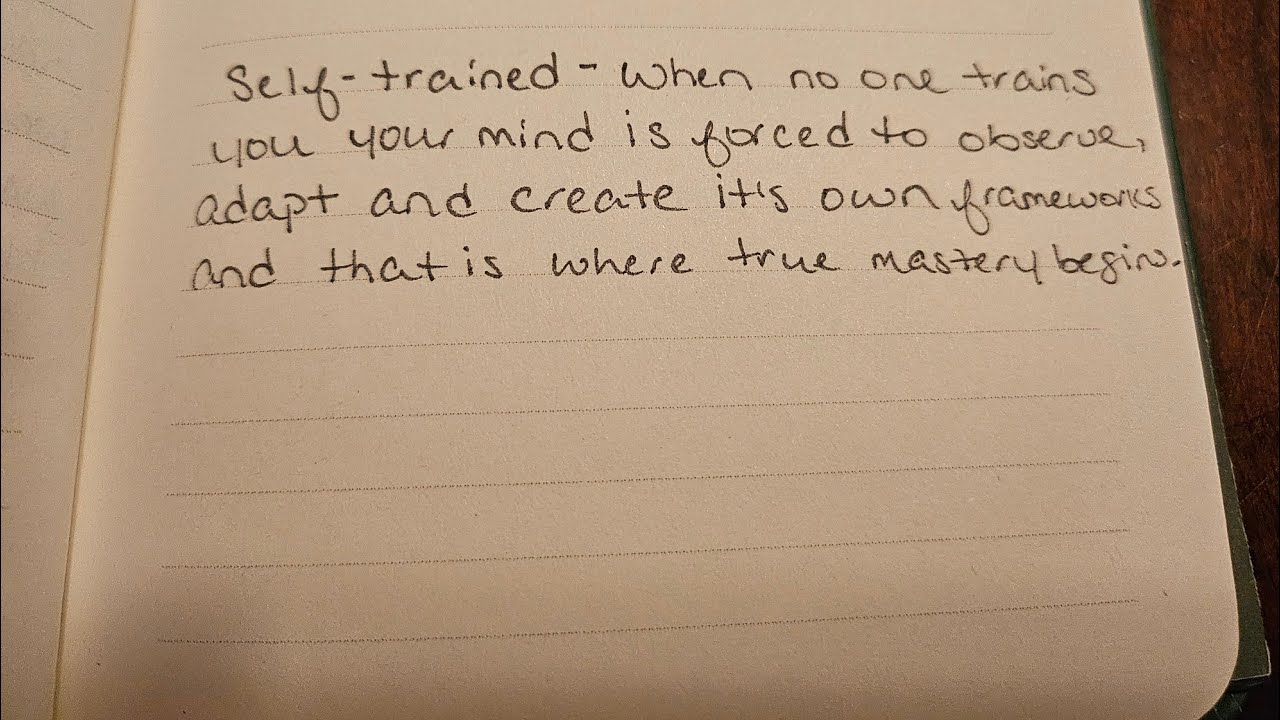 Self-trained - when no one trains
you your mind is forced to observe,
adapt and create it's own frameworks
and that is where true mastery begins.